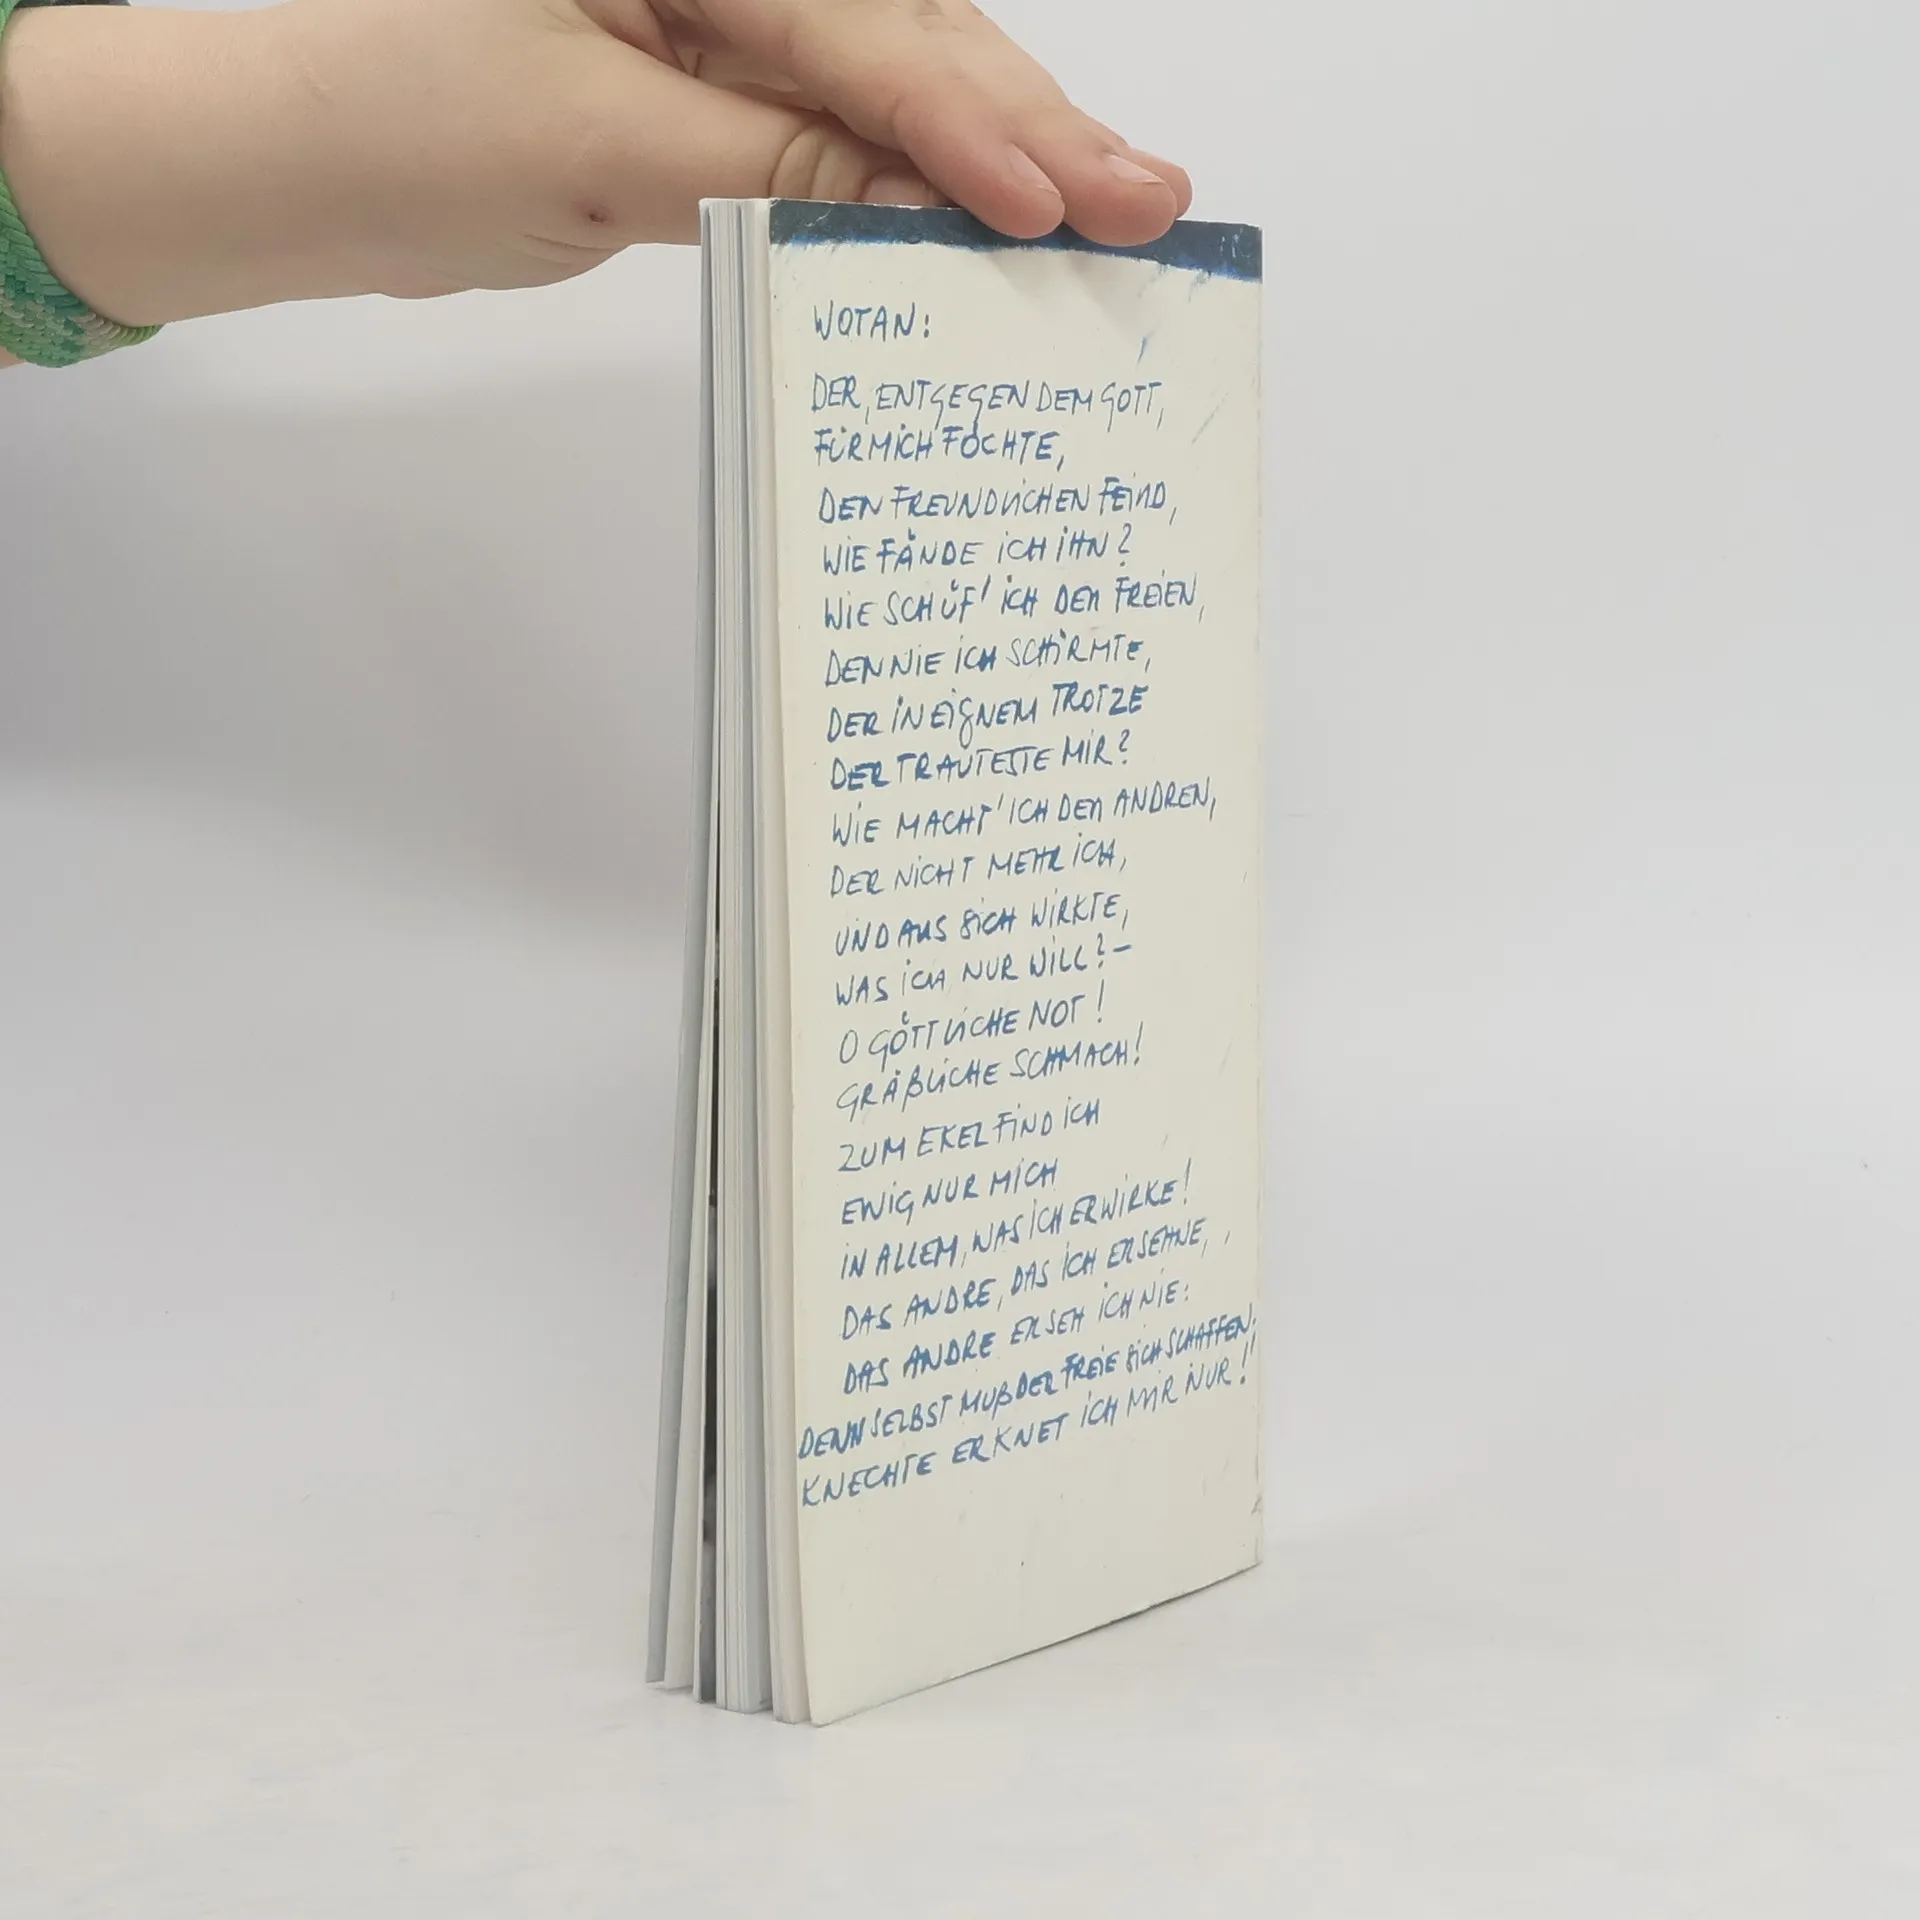 WOTAN:
DER, ENTGEGEN DEM GOTT,
FÜR MICH FÖCHTE,
DEN FREUNDLICHEN FEIND,
WIE FÄNDE ICH IHN?
WIE SCHÜF' ICH DEN FREIEN,
DEN NIE ICH SCHIRMTE,
DER IN EIGNEM TROTZE
DER TRAUTESTE MIR?
WIE MACHT' ICH DEN ANDREN,
DER NICHT MEHR ICH,
UND AUS SICH WIRKTE,
WAS ICH NUR WILL? –
O GÖTTLICHE NOT!
GRÄßLICHE SCHMACH!
ZUM EKEL FIND ICH
EWIG NUR MICH
IN ALLEM, WAS ICH ERWIRKE!
DAS ANDRE, DAS ICH ERSEHNE,,
DAS ANDRE ERSEH ICH NIE:
DENN SELBST MUß DER FREIE SICH SCHAFFEN:
KNECHTE ERKNET ICH MIR NUR!